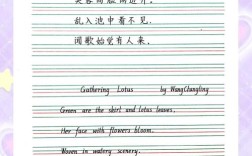 芙蓉向脸两边开.
乱入池中看不见.
闻歌始觉有人来.
Gathering Lotus by WangChangling
Green are the skirt and lotus leaves,
Her face with flowers bloom,
Woven in watery scenery.